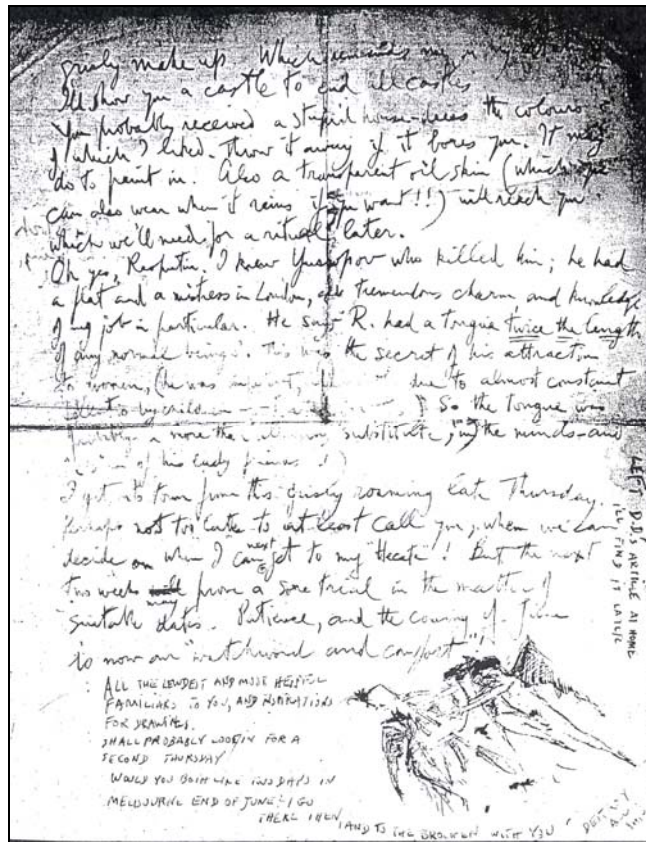 grisly make up. Which reminds me, in my
I'll show you a castle to end all castles
You probably received a stupid house-dress the colours
of which I liked. Throw it away if it bores you. It may
do to paint in. Also a transparent oil skin (which one
can also wear when it rains if you want!!) will reach you
which we'll need for a ritual later.
Oh yes, Rasputin. I knew Yussupov who killed him; he had
a flat and a mistress in London, tremendous charm and knowledge
of my job in particular. He says R. had a tongue twice the length
of any normal being's. This was the secret of his attraction
to women, (he was due to almost constant
by children So the tongue was
probably a more than substitute, in the minds - and
of his lady friends
I get to town from this grisly roaming late Thursday.
Perhaps not too late to at least call you, when we can
decide on when I can next get to my "Hecate"! But the next
two weeks may prove a sore trial in the matter of
suitable dates. Patience, and the coming of June
is now our "watchword and comfort"!
ALL THE LEWDEST AND MOST HELPFUL
FAMILIARS TO YOU, AND INSPIRATIONS
FOR DRAWINGS.
SHALL PROBABLY LOOK IN FOR A
SECOND THURSDAY
WOULD YOU BOTH LIKE TWO DAYS IN
MELBOURNE END OF JUNE? I GO
THERE THEN
AND TO THE BROKEN WITH YOU
LEFT D.D.'S ARTICLE AT HOME
I'LL FIND IT LATER